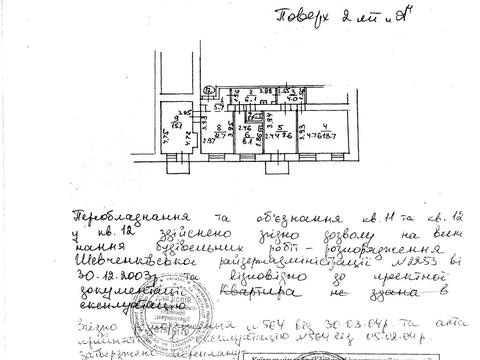 Поверх 2
12
9
15.1
3.85
4.75
4.72
1
5.7
1.56
2
6.1
3.88
2.55
3
1.56
3.93
8
11.7
2.97
3.95
2.46
6
8.1
2.86
3.94
5
2.44
9.6
3.93
4
4.76
18.7
Переобладнання та об'єднання кв. 11 та кв. 12
у кв. 12 здійснено згідно дозволу на вик
нання будівельних робіт - розпорядження
Шевченківської райдержадміністрації №2253 ві
30.12.2003р. та відповідно до проектної
документації. Квартира не здана в
експлуатацію
Згідно розпорядження №564 від 30.03.04р. та акта
прийняття в експлуатацію №564 від 05.02.04р.
затверджено перепланування